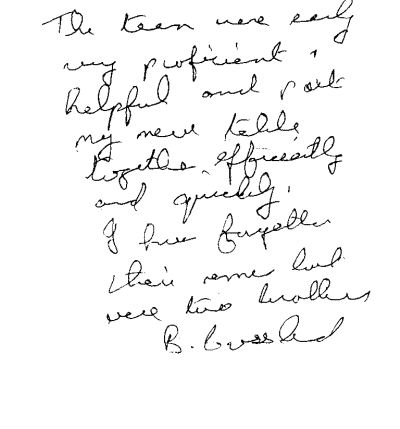 The team were early
very proficient,
helpful and put
my new table
together efficiently
and quickly.
I have forgotten
their names but
were two brothers
B.